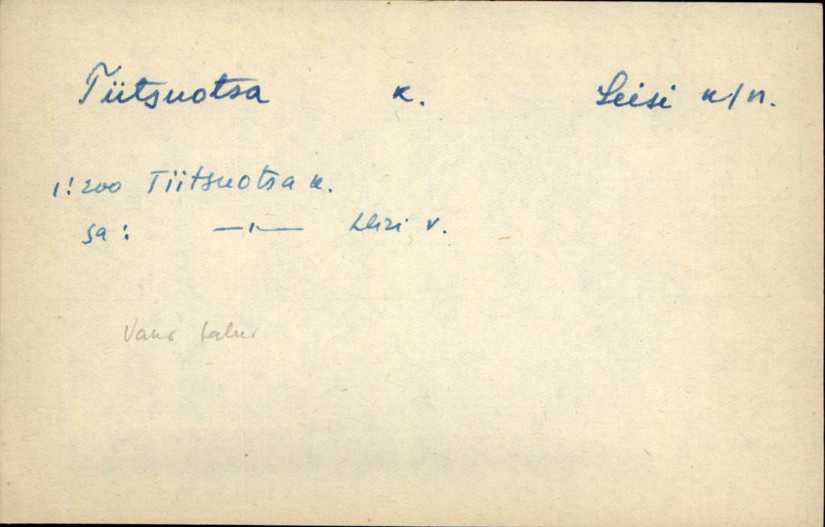 Tiitsuotsa k. Leisi k/n.
1:200 Tiitsuotsa k.
Sa: —"— Leisi v.
Vana talu